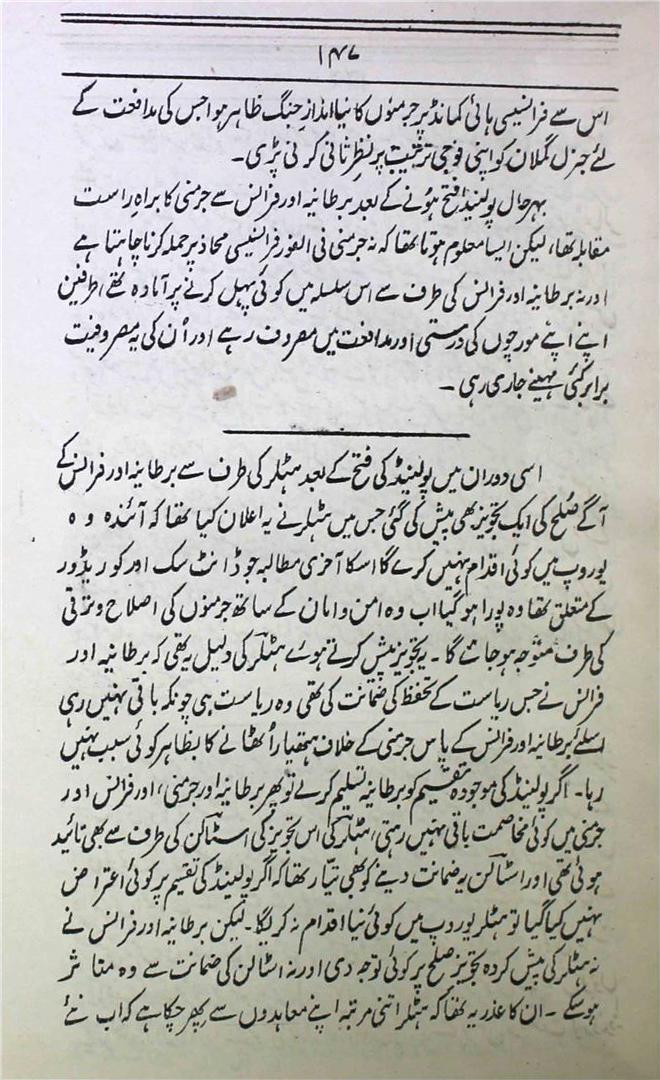 ۱۴۷
اس سے فرانسیسی ہائی کمانڈ پر جرمنوں کا نیا اندازِ جنگ ظاہر ہوا جس کی مدافعت کے
لئے جنرل گملان کو اپنی فوجی ترتیب پر نظر ثانی کرنی پڑی۔
بہرحال پولینڈ فتح ہونے کے بعد برطانیہ اور فرانس سے جرمنی کا براہِ راست
مقابلہ تھا، لیکن ایسا معلوم ہوتا تھا کہ نہ جرمنی فی الفور فرانسیسی محاذ پر حملہ کرنا چاہتا ہے
اور نہ برطانیہ اور فرانس کی طرف سے اس سلسلہ میں کوئی پہل کرنے پر آمادہ تھے، طرفین
اپنے اپنے مورچوں کی درستی اور مدافعت میں مصروف رہے اور اُن کی یہ مصروفیت
برابر کئی مہینے جاری رہی۔
اسی دوران میں پولینڈ کی فتح کے بعد ہٹلر کی طرف سے برطانیہ اور فرانس کے
آگے صُلح کی ایک تجویز بھی پیش کی گئی جس میں ہٹلر نے یہ اعلان کیا تھا کہ آئندہ وہ
یوروپ میں کوئی اقدام نہیں کرے گا اسکا آخری مطالبہ جو ڈانٹ سک اور کوریڈور
کے متعلق تھا وہ پورا ہو گیا اب وہ امن و امان کے ساتھ جرمنوں کی اصلاح و ترقی
کی طرف متوجہ ہو جائے گا۔ یہ تجویز پیش کرتے ہوئے ہٹلر کی دلیل یہ تھی کہ برطانیہ اور
فرانس نے جس ریاست کے تحفظ کی ضمانت کی تھی وہ ریاست ہی چونکہ باقی نہیں رہی
اسلئے برطانیہ اور فرانس کے پاس جرمنی کے خلاف ہتھیار اُٹھانے کا بظاہر کوئی سبب نہیں
رہا۔ اگر پولینڈ کی موجودہ تقسیم کو برطانیہ تسلیم کرلے تو پھر برطانیہ اور جرمنی، اور فرانس اور
جرمنی میں کوئی مخاصمت باقی نہیں رہتی، ہٹلر کی اس تجویز کی اسٹالن کی طرف سے بھی تائید
ہوئی تھی اور اسٹالن یہ ضمانت دینے کو بھی تیار تھا کہ اگر پولینڈ کی تقسیم پر کوئی اعتراض
نہیں کیا گیا تو ہٹلر یوروپ میں کوئی نیا اقدام نہ کریگا۔ لیکن برطانیہ اور فرانس نے
نہ ہٹلر کی پیش کردہ تجویز صلح پر کوئی توجہ دی اور نہ اسٹالن کی ضمانت سے وہ متاثر
ہوسکے۔ ان کا عذر یہ تھا کہ ہٹلر اتنی مرتبہ اپنے معاہدوں سے پھر چکا ہے کہ اب نئے